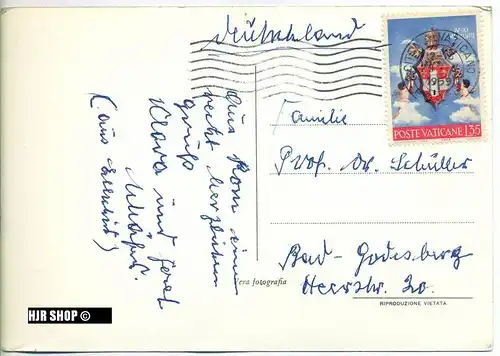 Deutschland
Aus Rom einen
recht herzlichen
Gruß
Klara und
(aus
Familie
Prof. Dr. Schüller
Bad-Godesberg
Heerstr. 20.
POSTE VATICANE L.35
Vera fotografia
RIPRODUZIONE VIETATA
HJR SHOP ©